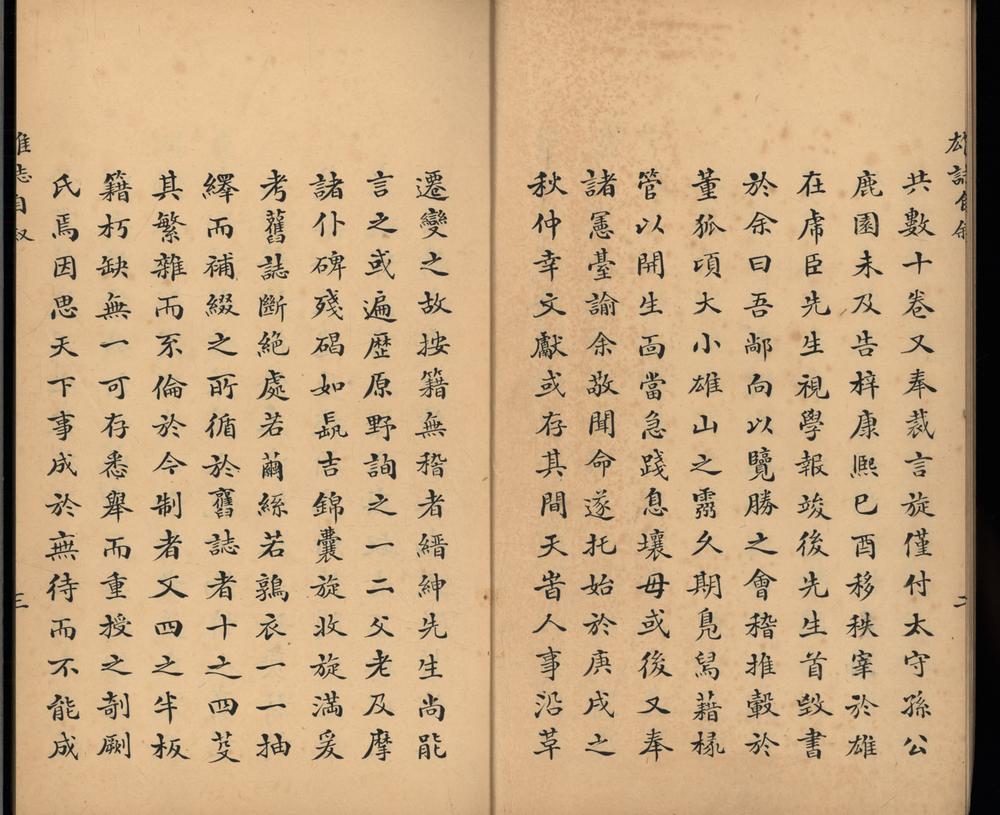 共數十卷又奉裁言旋僅付太守孫公
鹿園未及告梓康熙己酉移秩宰於雄
在席臣先生視學報竣後先生首毀書
於余曰吾鄗向以覽勝之會稽推轂於
董狐項大小雄山之靈久期鳧舄藉椽
管以開生面當急踐息壤毋或後又奉
諸憲臺諭余敬聞命遂托始於庚戌之
秋仲幸文獻或存其間天峕人事沿革
二
遷變之故按籍無稽者縉紳先生尚能
言之或遍歷原野詢之一二父老及摩
諸仆碑殘碣如長吉錦囊旋收旋滿爰
考舊誌斷絶處若繭絲若鶉衣一一抽
繹而補綴之所循於舊誌者十之四芟
其繁雜而不倫於今制者又四之半板
籍朽缺無一可存悉舉而重授之剞劂
氏焉因思天下事成於無待而不能成
三